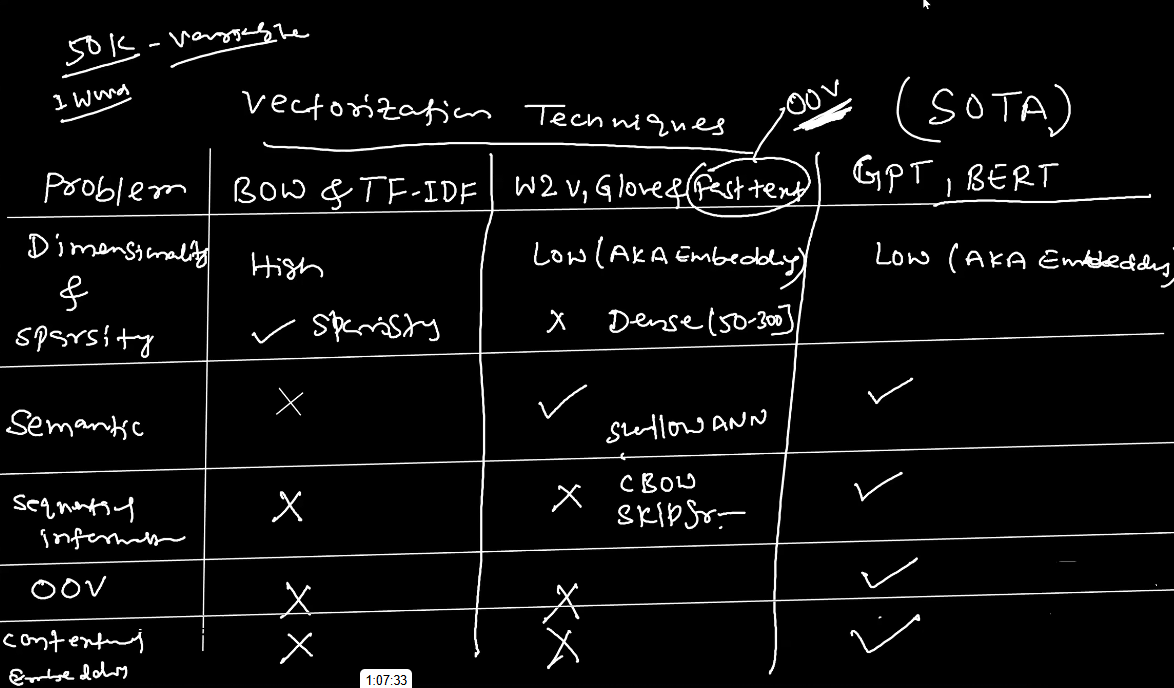 50K - Variable
1 Word
Vectorization Techniques
OOV
(SOTA)
Problem
BOW & TF-IDF
W2V, Glove & Fasttext
GPT, BERT
Dimensionality
&
Sparsity
High
✓ Sparsity
Low (AKA Embedding)
x Dense [50-300]
Low (AKA Embedding)
Semantic
X
✓
Shallow ANN
✓
Sequential
information
X
X
CBOW
SKIP Gr.—
✓
OOV
X
X
✓
Contextual
Embedding
X
X
✓
1:07:33